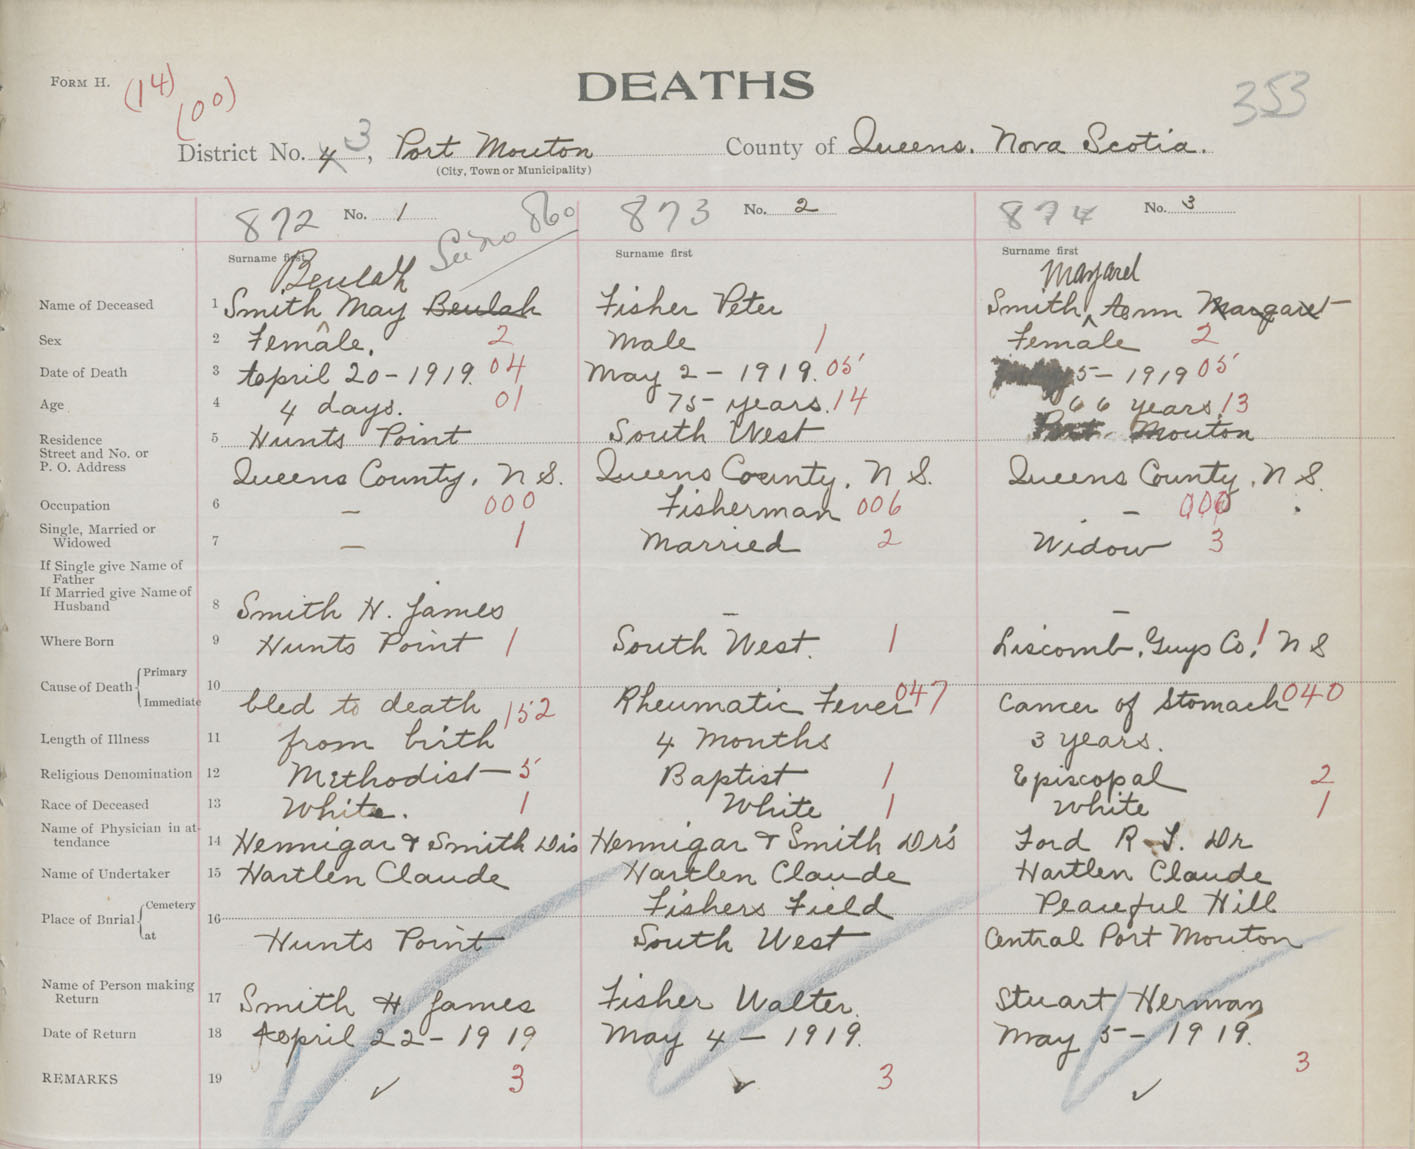 FORM H.
(14)
(00)
DEATHS
353
District No. 4 3, Port Mouton County of Queens. Nova Scotia.
(City, Town or Municipality)
872 No. 1 See no 860 873 No. 2 874 No. 3
Surname first Surname first Surname first
Beulah Margaret
Name of Deceased 1 Smith May Beulah Fisher Peter Smith, Ann Margaret
Sex 2 Female. 2 Male 1 Female 2
Date of Death 3 April 20-1919. 04 May 2-1919. 05 5-1919 05
Age 4 4 days. 01 75 years. 14 66 years. 13
Residence 5 Hunts Point South West Port Mouton
Street and No. or
P. O. Address Queens County, N S. Queens County, N S. Queens County, N S.
Occupation 6 – 000 Fisherman 006 – 000
Single, Married or
Widowed 7 – 1 Married 2 Widow 3
If Single give Name of
Father
If Married give Name of
Husband 8 Smith H. James – –
Where Born 9 Hunts Point 1 South West. 1 Liscomb, Guys Co, 1 N S
Cause of Death { Primary
Immediate 10 bled to death 152 Rheumatic Fever 047 Cancer of Stomach 040
Length of Illness 11 from birth 4 Months 3 years.
Religious Denomination 12 Methodist 5 Baptist 1 Episcopal 2
Race of Deceased 13 White. 1 White 1 White 1
Name of Physician in at-
tendance 14 Hennigar & Smith Drs Hennigar & Smith Dr's Ford R. J. Dr
Name of Undertaker 15 Hartlen Claude Hartlen Claude Hartlen Claude
Place of Burial { Cemetery 16 Fishers Field Peaceful Hill
at Hunts Point South West Central Port Mouton
Name of Person making
Return 17 Smith H James Fisher Walter. Stuart Herman
Date of Return 18 April 22-1919 May 4-1919. May 5-1919.
REMARKS 19 ✓ 3 ✓ 3 ✓ 3